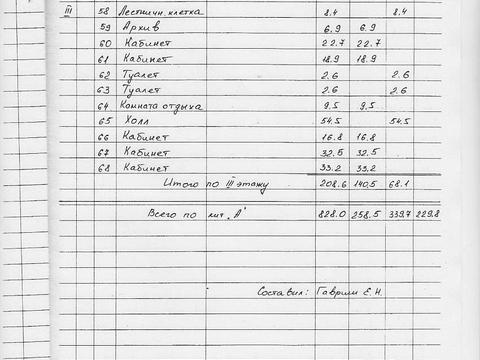 III 58 Лестничн. клетка 8.4 8.4
59 Архив 6.9 6.9
60 Кабинет 22.7 22.7
61 Кабинет 18.9 18.9
62 Туалет 2.6 2.6
63 Туалет 2.6 2.6
64 Комната отдыха 9.5 9.5
65 Холл 54.5 54.5
66 Кабинет 16.8 16.8
67 Кабинет 32.5 32.5
68 Кабинет 33.2 33.2
Итого по III этажу 208.6 140.5 68.1
Всего по лит. "А" 828.0 258.5 339.7 229.8
Составил: Гавриш Е.Н.